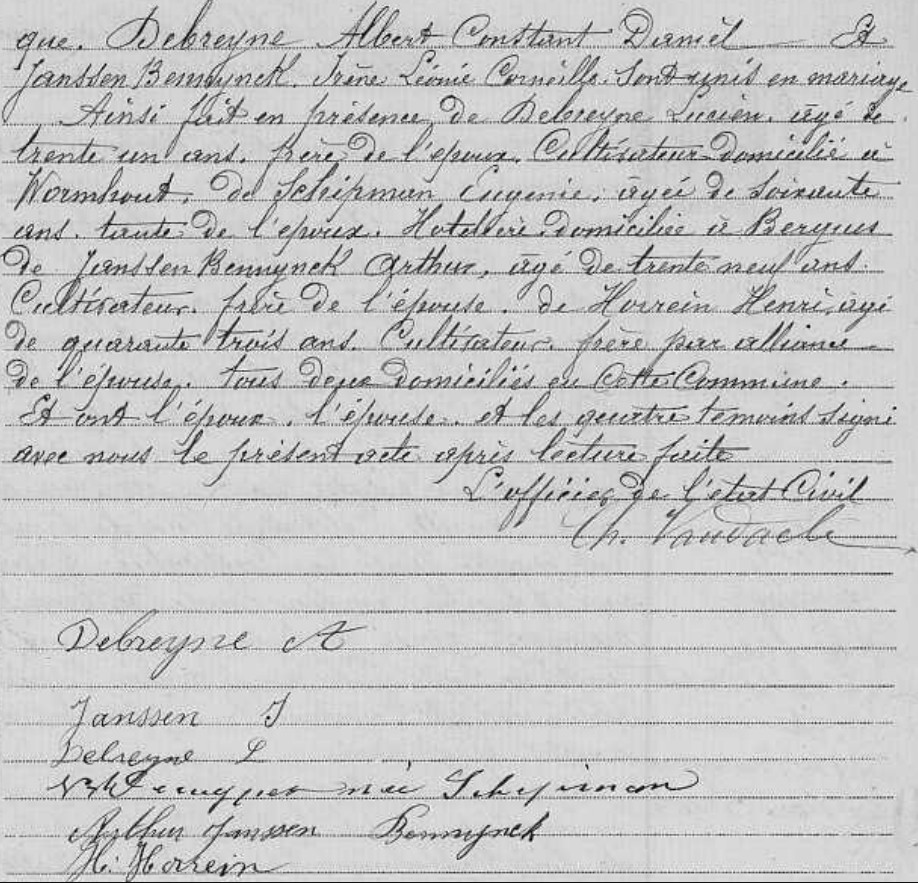 que. Debreyne Albert Constant Daniël — Et
Janssen Bennynck. Irène Léonie Corneille. Sont unis en mariage
Ainsi fait en présence de Debreyne Lucien. âgé de
trente un ans. frère de l'epoux. Cultivateur domicilié à
Wormhout. de Schipman Eugenie. âgée de soixante
ans. tante de l'époux. Hotelière. domiciliée à Bergues
de Janssen Bennynck Arthur, âgé de trente neuf ans.
Cultivateur. frère de l'épouse. de Horrein Henri, âgé
de quarante trois ans. Cultivateur. frère par alliance —
de l'épouse. tous deux domiciliés en cette Commune.
Et ont l'époux. l'épouse. et les quatre temoins signé
avec nous le présent acte après lecture faite
L'officier de l'état Civil
Ch. Vandaele
Debreyne A
Janssen I
Debreyne L
née Schipman
Arthur Janssen Bennynck
H. Horrein